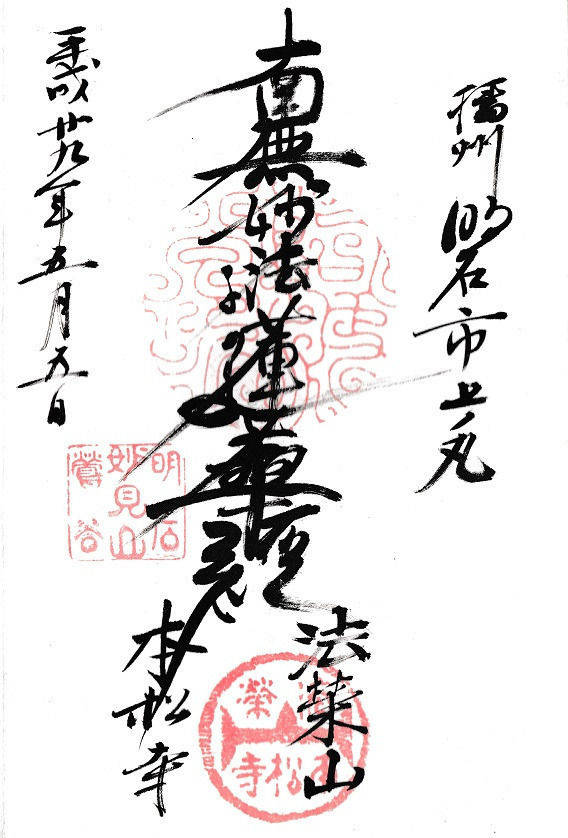 播州 明石市上ノ丸
南無妙法蓮華経
法榮山
本松寺
平成廿九年五月五日
明石
妙見山
鶯谷
松寺